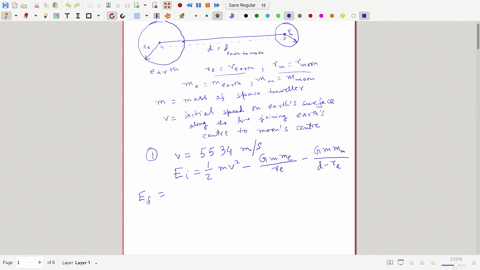 Sans Regular 11
r_e
r
d = d
earth to moon
earth
r_e = r_earth , r_m = r_moon
m_e = m_earth , m_m = m_moon
m = mass of space traveller
v = initial speed on earth's surface
along the line joining earth's
centre to moon's centre
① v = 5534 m/s
E_i = 1/2 mv² - G m m_e / r_e - G m m_m / (d - r_e)
E_f =
Page 1 of 6 Layer Layer 1